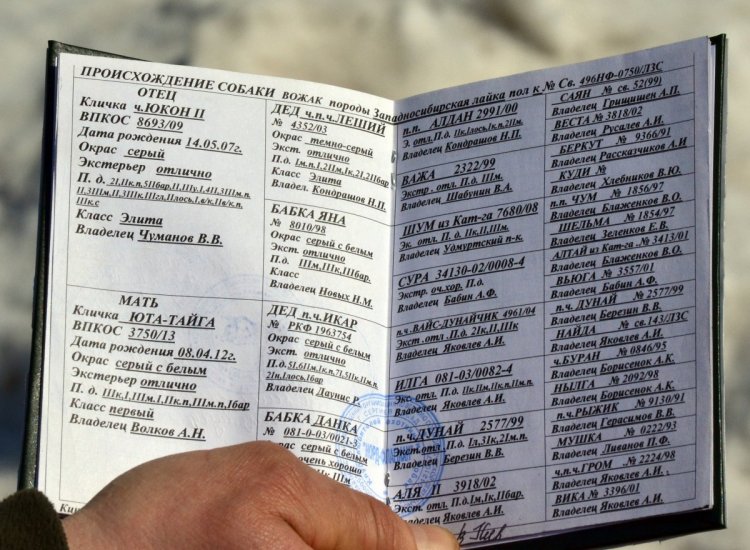 ПРОИСХОЖДЕНИЕ СОБАКИ ВОЖАК породы Западносибирская лайка пол к № Св. 496НФ-0750/ЛЗС
ОТЕЦ
Кличка ч.ЮКОН П
ВПКОС 8693/09
Дата рождения 14.05.07г.
Окрас серый
Экстерьер отлично
П.д.
Класс Элита
Владелец Чуманов В.В.
МАТЬ
Кличка ЮТА-ТАЙГА
ВПКОС 3750/13
Дата рождения 08.04.12г.
Окрас серый с белым
Экстерьер отлично
П. д. IIIк.I,IIIм.I,IIк.п,IIIм.п,Iбар
Класс первый
Владелец Волков А.Н.
ДЕД ч.п.ч.ЛЕШИЙ
№ 4352/03
Окрас темно-серый
Экст. отлично
П.д. Iм.п.I,2IIм.Iк.2I,2IIбар
Класс Элита
Владел. Кондрашов Н.П.
БАБКА ЯНА
№ 8010/98
Окрас серый с белым
Экст. отлично
П.д. IIIм.IIIк,IIIбар.
Класс
Владелец Новых Н.М.
ДЕД п.ч.ИКАР
№ РКФ 1963754
Окрас серый с белым
Экст. отлично
Владелец Даунис Р.
БАБКА ДАНКА
№ 081-0-03/0021-3
Окрас серый с белым
очень хорошо
п.п. АЛЛАН 2991/00
Э. отл.П.д. IIк.Iлось,Iк.п,2IIм
Владелец Кондрашов Н.П.
ВАЖА 2322/99
Экстр. отл. П.д. IIIм.
Владелец Шабунин В.А.
ШУМ из Кат-га 7680/08
Эк. отл. П. д. IIк,II,IIIм.
Владелец Удмуртский п-к.
СУРА 34130-02/0008-4
Экстр. оч.хор. П.д.
Владелец Бабин А.Ф.
п.ч.ВАЙС-ДУНАЙЧИК 4961/04
Экст.отл .П.д. 2Iк,II,IIIк
Владелец Яковлев А.И.
ИЛГА 081-03/0082-4
Экс. отл. П.д. IIк,IIм,IIк.п,IIм.п.
Владелец Яковлев А.И.
п.ч.ДУНАЙ 2577/99
Экст.отл П.д. Iл,3Iк,2Iм.п.
Владелец Березин В.В.
АЛЯ П 3918/02
Экст.отл. П.д. Iм,Iк,IIбар.
Владелец Яковлев А.И.
САЯН № св. 52(99)
Владелец Грищишен А.П.
ВЕСТА № 3818/02
Владелец Русалев А.И.
БЕРКУТ № 9366/91
Владелец Рассказчиков А.И
КУДИ №
Владелец Хлебников В.Ю.
пп. ЧУМ № 1856/97
Владелец Блаженков В.О.
ШЕЛЬМА № 1854/97
Владелец Зеленков Е.В.
АЛТАЙ из Кат-га . № 3413/01
Владелец Блаженков В.О.
ВЬЮГА № 3557/01
Владелец Бабин А.Ф.
п.ч. ДУНАЙ № 2577/99
Владелец Березин В.В.
НАЙДА № св.143/ЛЗС
Владелец Яковлев А.И.
ч.БУРАН № 0846/95
Владелец Борисенок А.К.
НЫЛГА № 2092/98
Владелец Борисенок А.К.
п.ч.РЫЖИК № 9130/91
Владелец Герасимов В.В.
МУШКА № 0222/93
Владелец Ливанов П.Ф.
ч.п.ч.ГРОМ . № 2224/98
Владелец Яковлев А.И. .
ВИКА № 3396/01
Владелец Яковлев А.И.